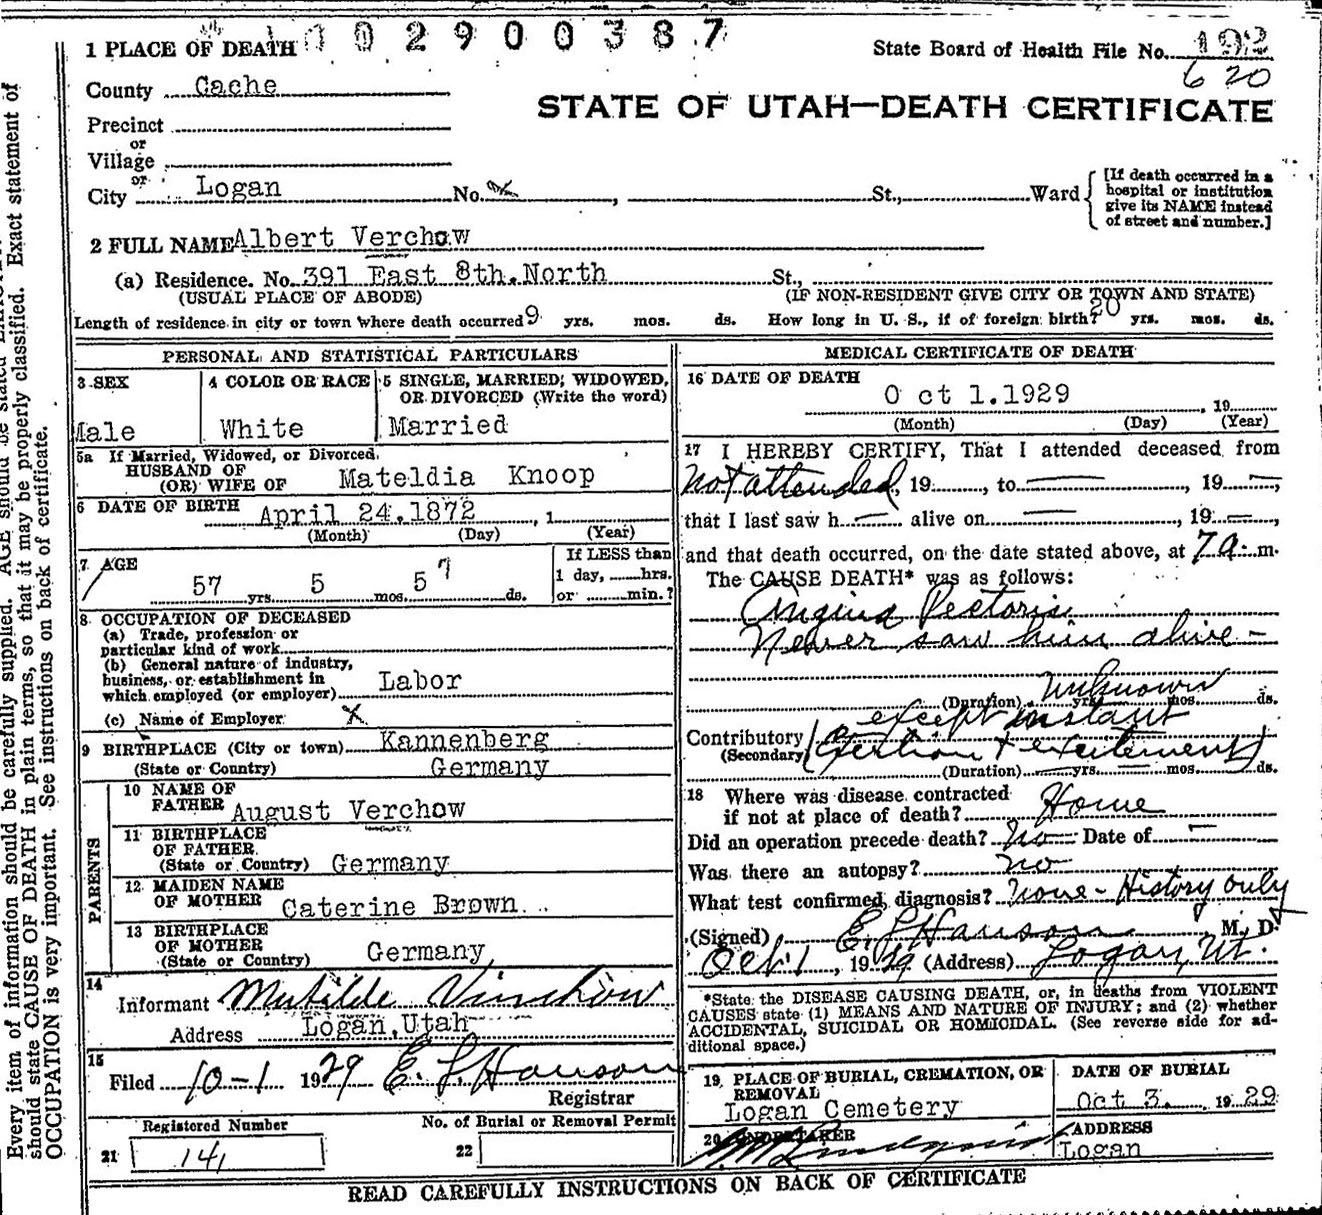 002900387
1 PLACE OF DEATH
State Board of Health File No. 192
620
County Cache
STATE OF UTAH—DEATH CERTIFICATE
Precinct
or
Village
or
City Logan No. , St., Ward
[If death occurred in a hospital or institution give its NAME instead of street and number.]
2 FULL NAME Albert Verchow
(a) Residence. No. 391 East 8th. North St.,
(USUAL PLACE OF ABODE) (IF NON-RESIDENT GIVE CITY OR TOWN AND STATE)
Length of residence in city or town where death occurred 9 yrs. mos. ds. How long in U. S., if of foreign birth? 20 yrs. mos. ds.
PERSONAL AND STATISTICAL PARTICULARS
3 SEX 4 COLOR OR RACE 5 SINGLE, MARRIED, WIDOWED,
OR DIVORCED (Write the word)
Male White Married
5a If Married, Widowed, or Divorced
HUSBAND OF
(OR) WIFE OF Mateldia Knoop
6 DATE OF BIRTH April 24.1872, 1
(Month) (Day) (Year)
7 AGE 57 yrs. 5 mos. 5 7 ds.
If LESS than
1 day, hrs.
or min.?
8 OCCUPATION OF DECEASED
(a) Trade, profession or
particular kind of work
(b) General nature of industry,
business, or establishment in
which employed (or employer) Labor
(c) Name of Employer X
9 BIRTHPLACE (City or town) Kannenberg
(State or Country) Germany
PARENTS
10 NAME OF
FATHER August Verchow
11 BIRTHPLACE
OF FATHER
(State or Country) Germany
12 MAIDEN NAME
OF MOTHER Caterine Brown
13 BIRTHPLACE
OF MOTHER
(State or Country) Germany
14
Informant Matilde Virschow
Address Logan,Utah
15
Filed 10-1 1929 E. L. Hanson
Registrar
Registered Number
21 141
No. of Burial or Removal Permit
22
MEDICAL CERTIFICATE OF DEATH
16 DATE OF DEATH
O ct 1.1929, 19
(Month) (Day) (Year)
17 I HEREBY CERTIFY, That I attended deceased from
Not attended, 19 , to — , 19 —,
that I last saw h — alive on — , 19 —,
and that death occurred, on the date stated above, at 7 a. m.
The CAUSE DEATH* was as follows:
Angina Pectoris
Never saw him alive -
(Duration) Unknown yrs. mos. ds.
except instant
Contributory
(Secondary) (Exertion + excitement)
(Duration) yrs. mos. ds.
18 Where was disease contracted
if not at place of death? Home
Did an operation precede death? No Date of —
Was there an autopsy? no
What test confirmed diagnosis? none - History only
(Signed) E L Hanson M. D.
Oct 1, 1929 (Address) Logan, Ut.
*State the DISEASE CAUSING DEATH, or, in deaths from VIOLENT
CAUSES state (1) MEANS AND NATURE OF INJURY; and (2) whether
ACCIDENTAL, SUICIDAL OR HOMICIDAL. (See reverse side for ad-
ditional space.)
19 PLACE OF BURIAL, CREMATION, OR
REMOVAL
Logan Cemetery
DATE OF BURIAL
Oct 3. 1929
20 UNDERTAKER
ADDRESS
Logan
READ CAREFULLY INSTRUCTIONS ON BACK OF CERTIFICATE
Every item of information should be carefully supplied. AGE should be stated
should state CAUSE OF DEATH in plain terms, so that it may be properly classified. Exact statement of
OCCUPATION is very important. See instructions on back of certificate.